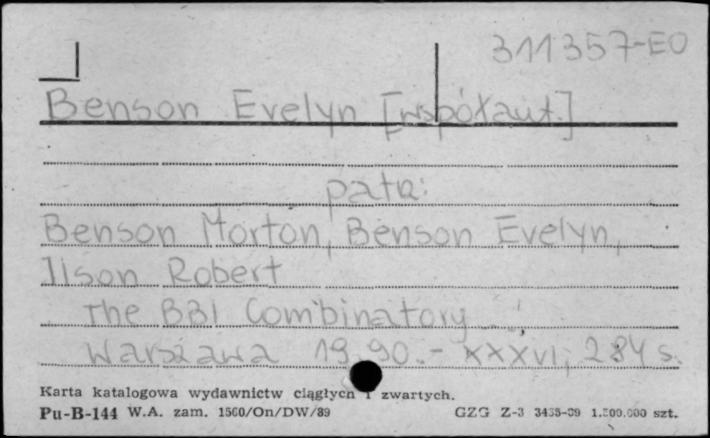 311357-EO
Benson Evelyn [współaut.]
patrz:
Benson Morton, Benson Evelyn,
Ilson Robert
The BBI Combinatory ...
Warszawa 1990.- XXXVI, 284 s.
Karta katalogowa wydawnictw ciągłych i zwartych.
Pu-B-144 W.A. zam. 1560/On/DW/89 GZG Z-3 3438-89 1.500.000 szt.